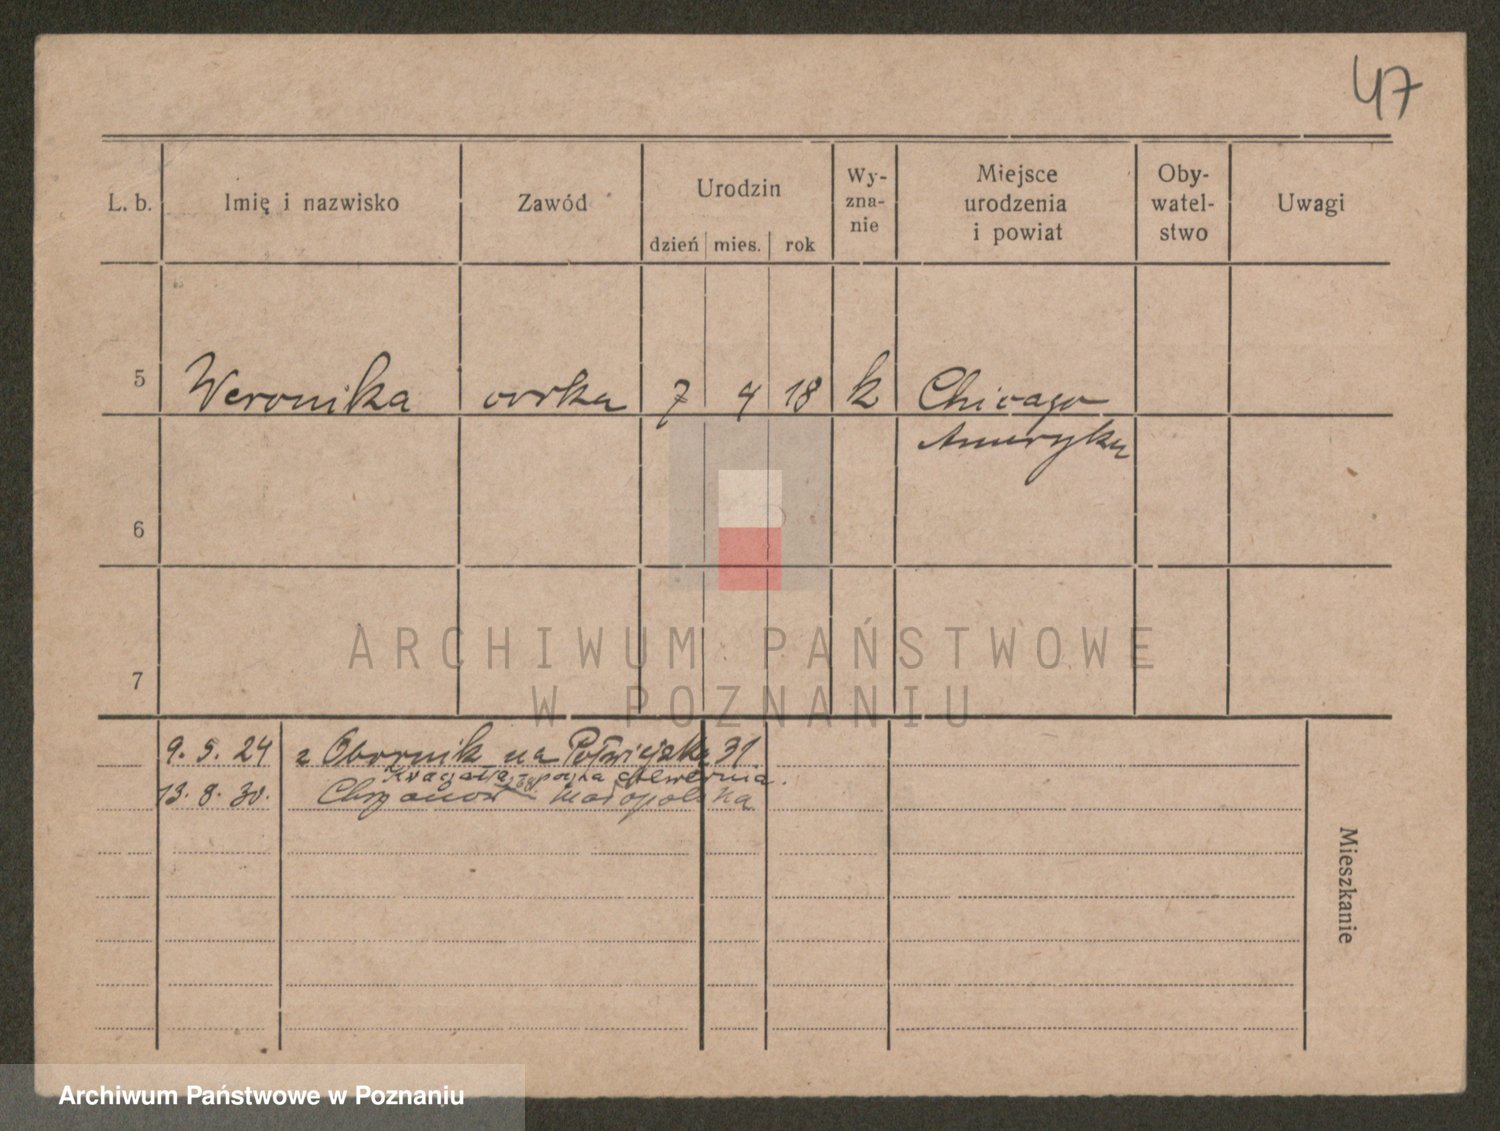 47
L. b. Imię i nazwisko Zawód Urodzin Wy-zna-nie Miejsce urodzenia i powiat Oby-watel-stwo Uwagi
dzień mies. rok
5 Weronika córka 7 4 18 k Chicago
Ameryka
6
ARCHIWUM PAŃSTWOWE
7
W POZNANIU
9. 5. 24 z Obornik na 31.
13. 8. 30. Chrzanów Małopolska
Mieszkanie
Archiwum Państwowe w Poznaniu